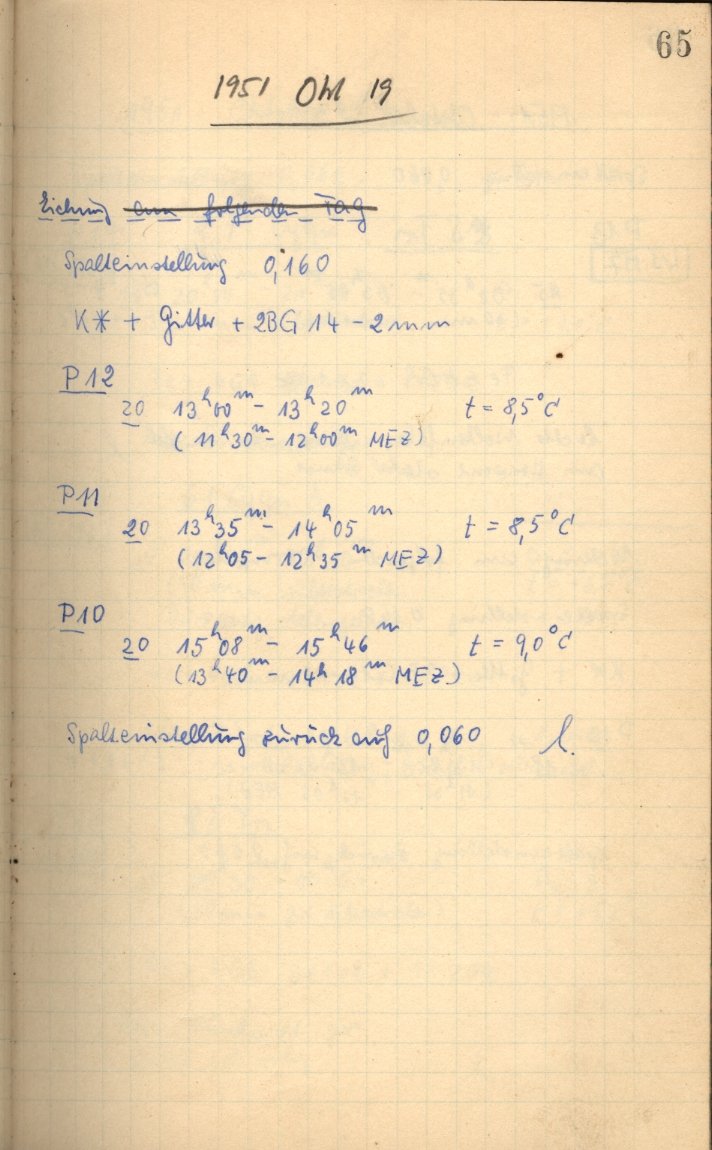 65
1951 Okt 19
Eichung am folgenden Tag
Spalteinstellung 0,160
K* + Gitter + 2BG 14 - 2mm
P12
20 13h00m - 13h20m t = 8,5°C
(11h30m - 12h00m MEZ)
P11
20 13h35m - 14h05m t = 8,5°C
(12h05 - 12h35m MEZ)
P10
20 15h08m - 15h46m t = 9,0°C
(13h40m - 14h18m MEZ)
Spalteinstellung zurück auf 0,060 l.